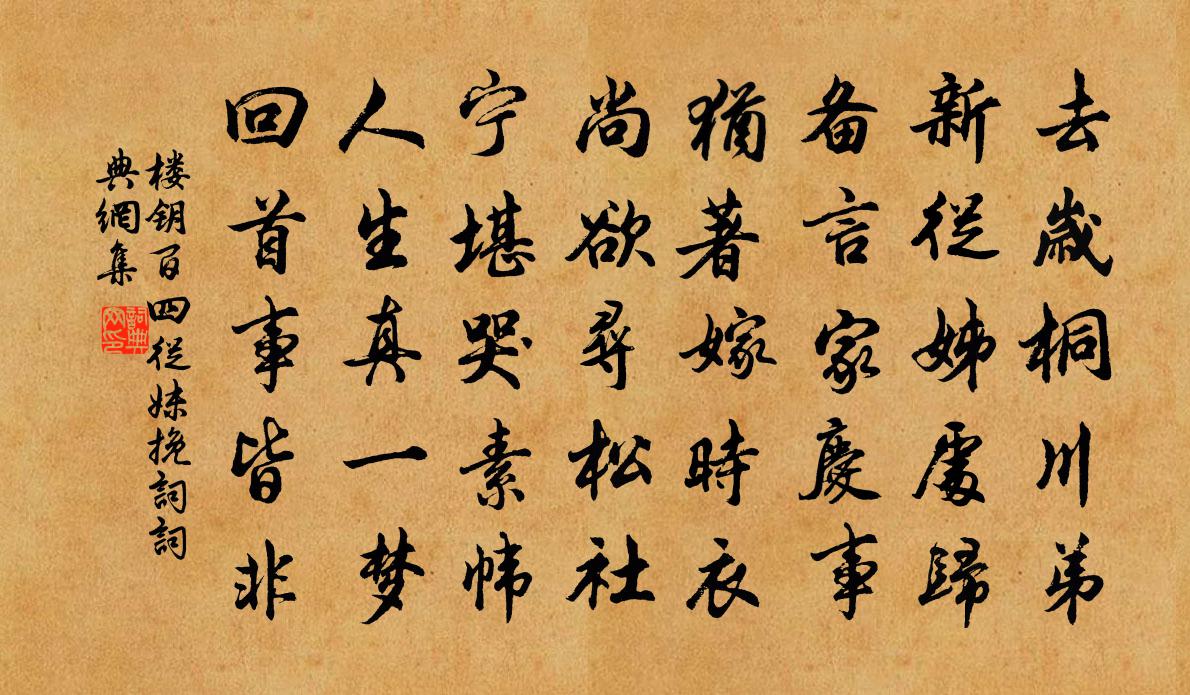 去歲桐川弟
新從姊處歸
备言家慶事
猶著嫁時衣
尚欲尋松社
宁堪哭素帏
人生真一梦
回首事皆非
楼钥百四從妹挽詞詞
典網集
詞典网印